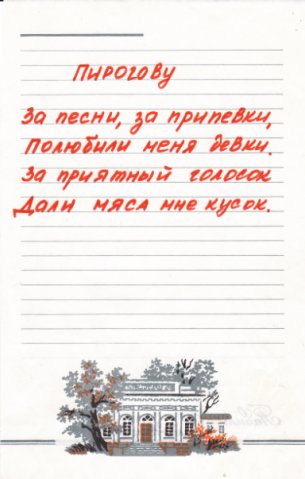 Пирогову
За песни, за припевки,
Полюбили меня девки.
За приятный голосок
Дали мяса мне кусок.